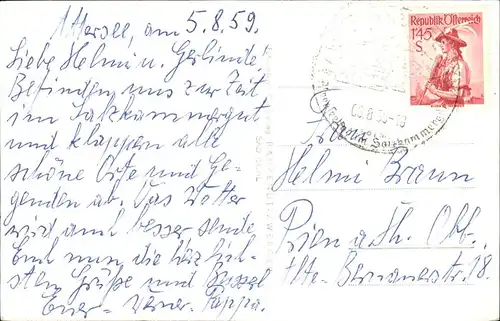 Attersee, am 5.8.59.
Liebe Helmi u. Gerlinde!
Befinden uns zur Zeit
im Salzkammergut
und klappern alle
schöne Orte und Ge-
genden ab. Das Wetter
wird auch besser sende
Euch nun, die herzlich-
sten Grüße und Bussel
Euer - Werner - Pappa.
Republik Österreich
1.45
S
im Salzkammergut
Frau
Helmi Braun
Prien a. Ch. Obb.
Alte-Bernauerstr. 18.